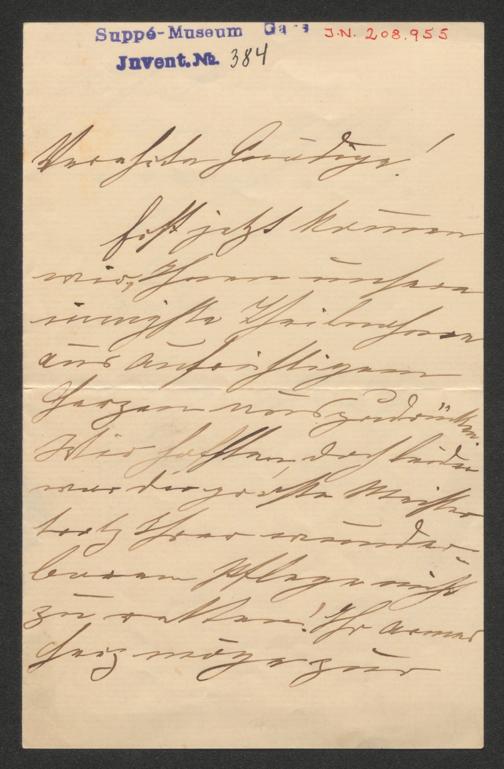 Suppé-Museum Ga
J.N. 208.955
Invent.No. 384
Verehrte Gnädige!
Erst jetzt kommen
wir, Ihnen unsere
innigste Theilnahme
aus aufrichtigem
Herzen auszudrücken.
Wir hofften, doch leider
war der größte Meister
trotz Ihrer wunder-
baren Pflege nicht
zu retten! Ihr armes
Herz möge zur